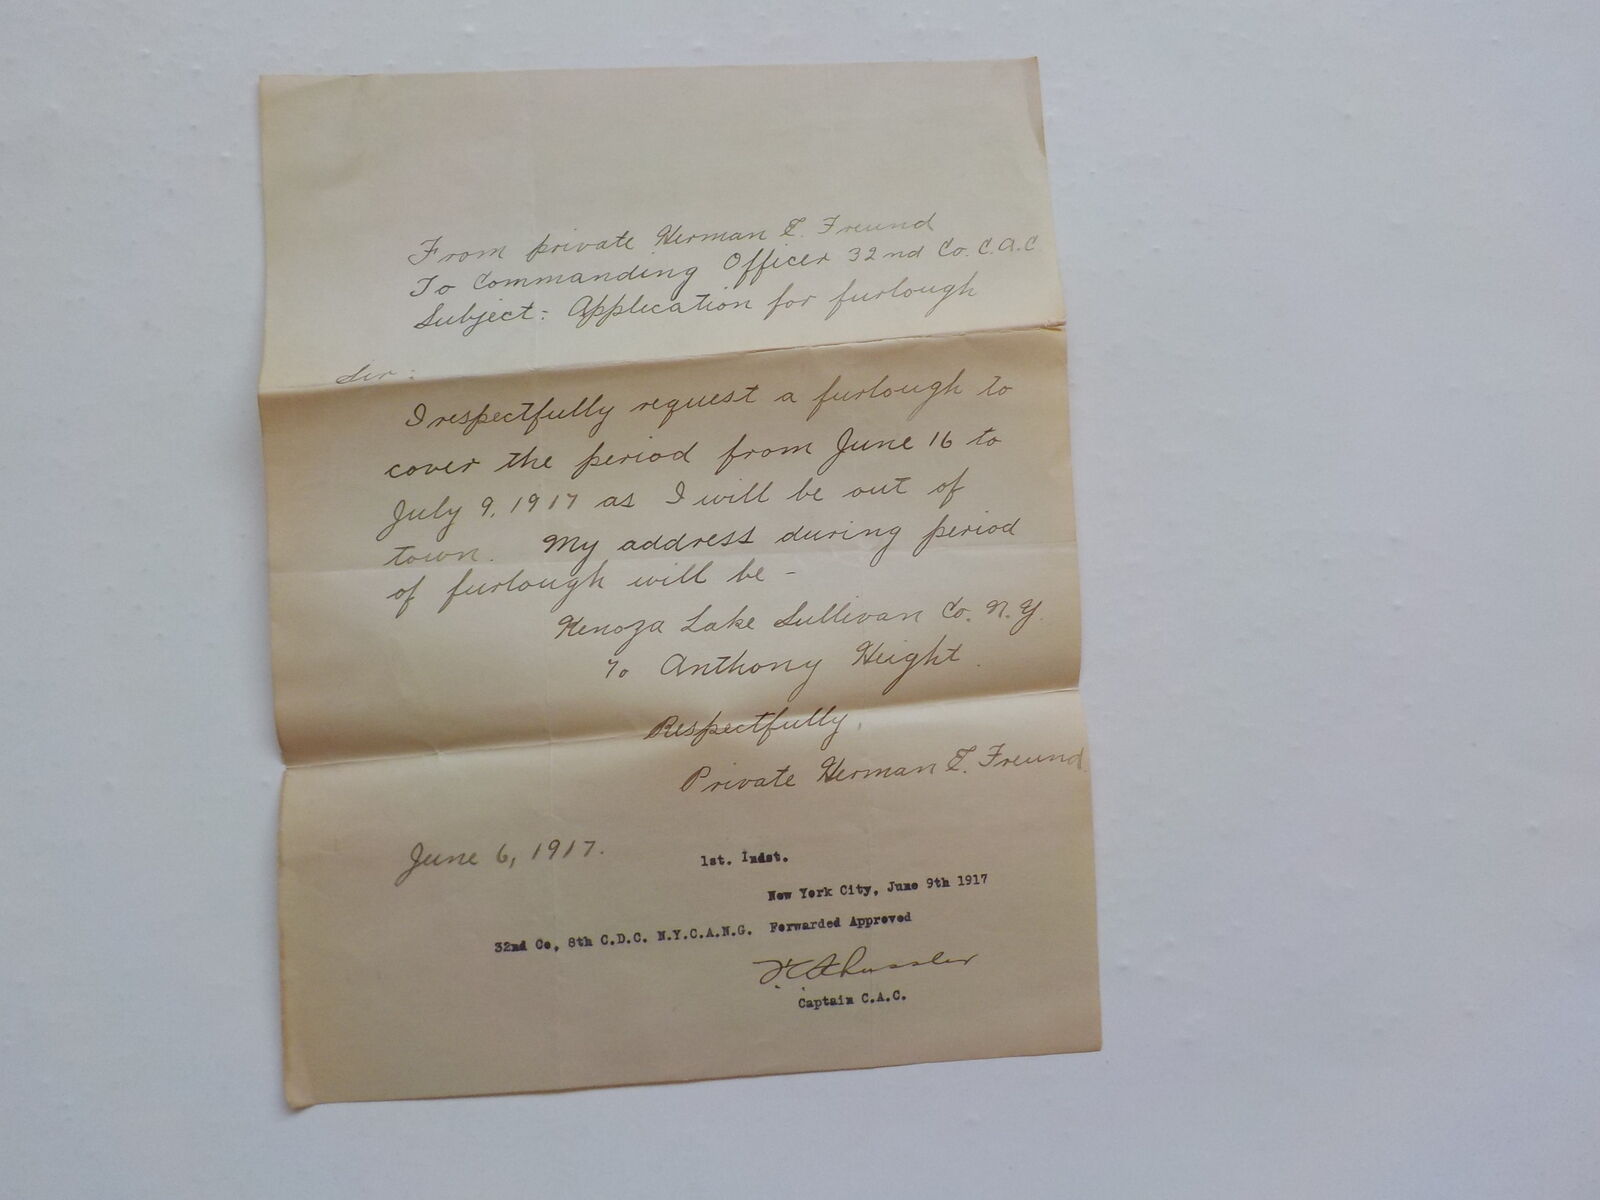 From private Herman E. Freund
To Commanding Officer 32nd Co. C.A.C
Subject: Application for furlough
Sir:
I respectfully request a furlough to
cover the period from June 16 to
July 9, 1917 as I will be out of
town. My address during period
of furlough will be –
Kenoza Lake Sullivan Co. N.Y.
℅ Anthony Height.
Respectfully,
Private Herman E. Freund
June 6, 1917.
1st. Indst.
New York City, June 9th 1917
32nd Co, 8th C.D.C. N.Y.C.A.N.G. Forwarded Approved
Captain C.A.C.